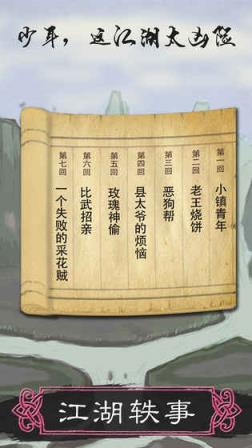 少年，这江湖太凶险
第一回 小镇青年
第二回 老王烧饼
第三回 恶狗帮
第四回 县太爷的烦恼
第五回 玫瑰神偷
第六回 比武招亲
第七回 一个失败的采花贼
江湖轶事